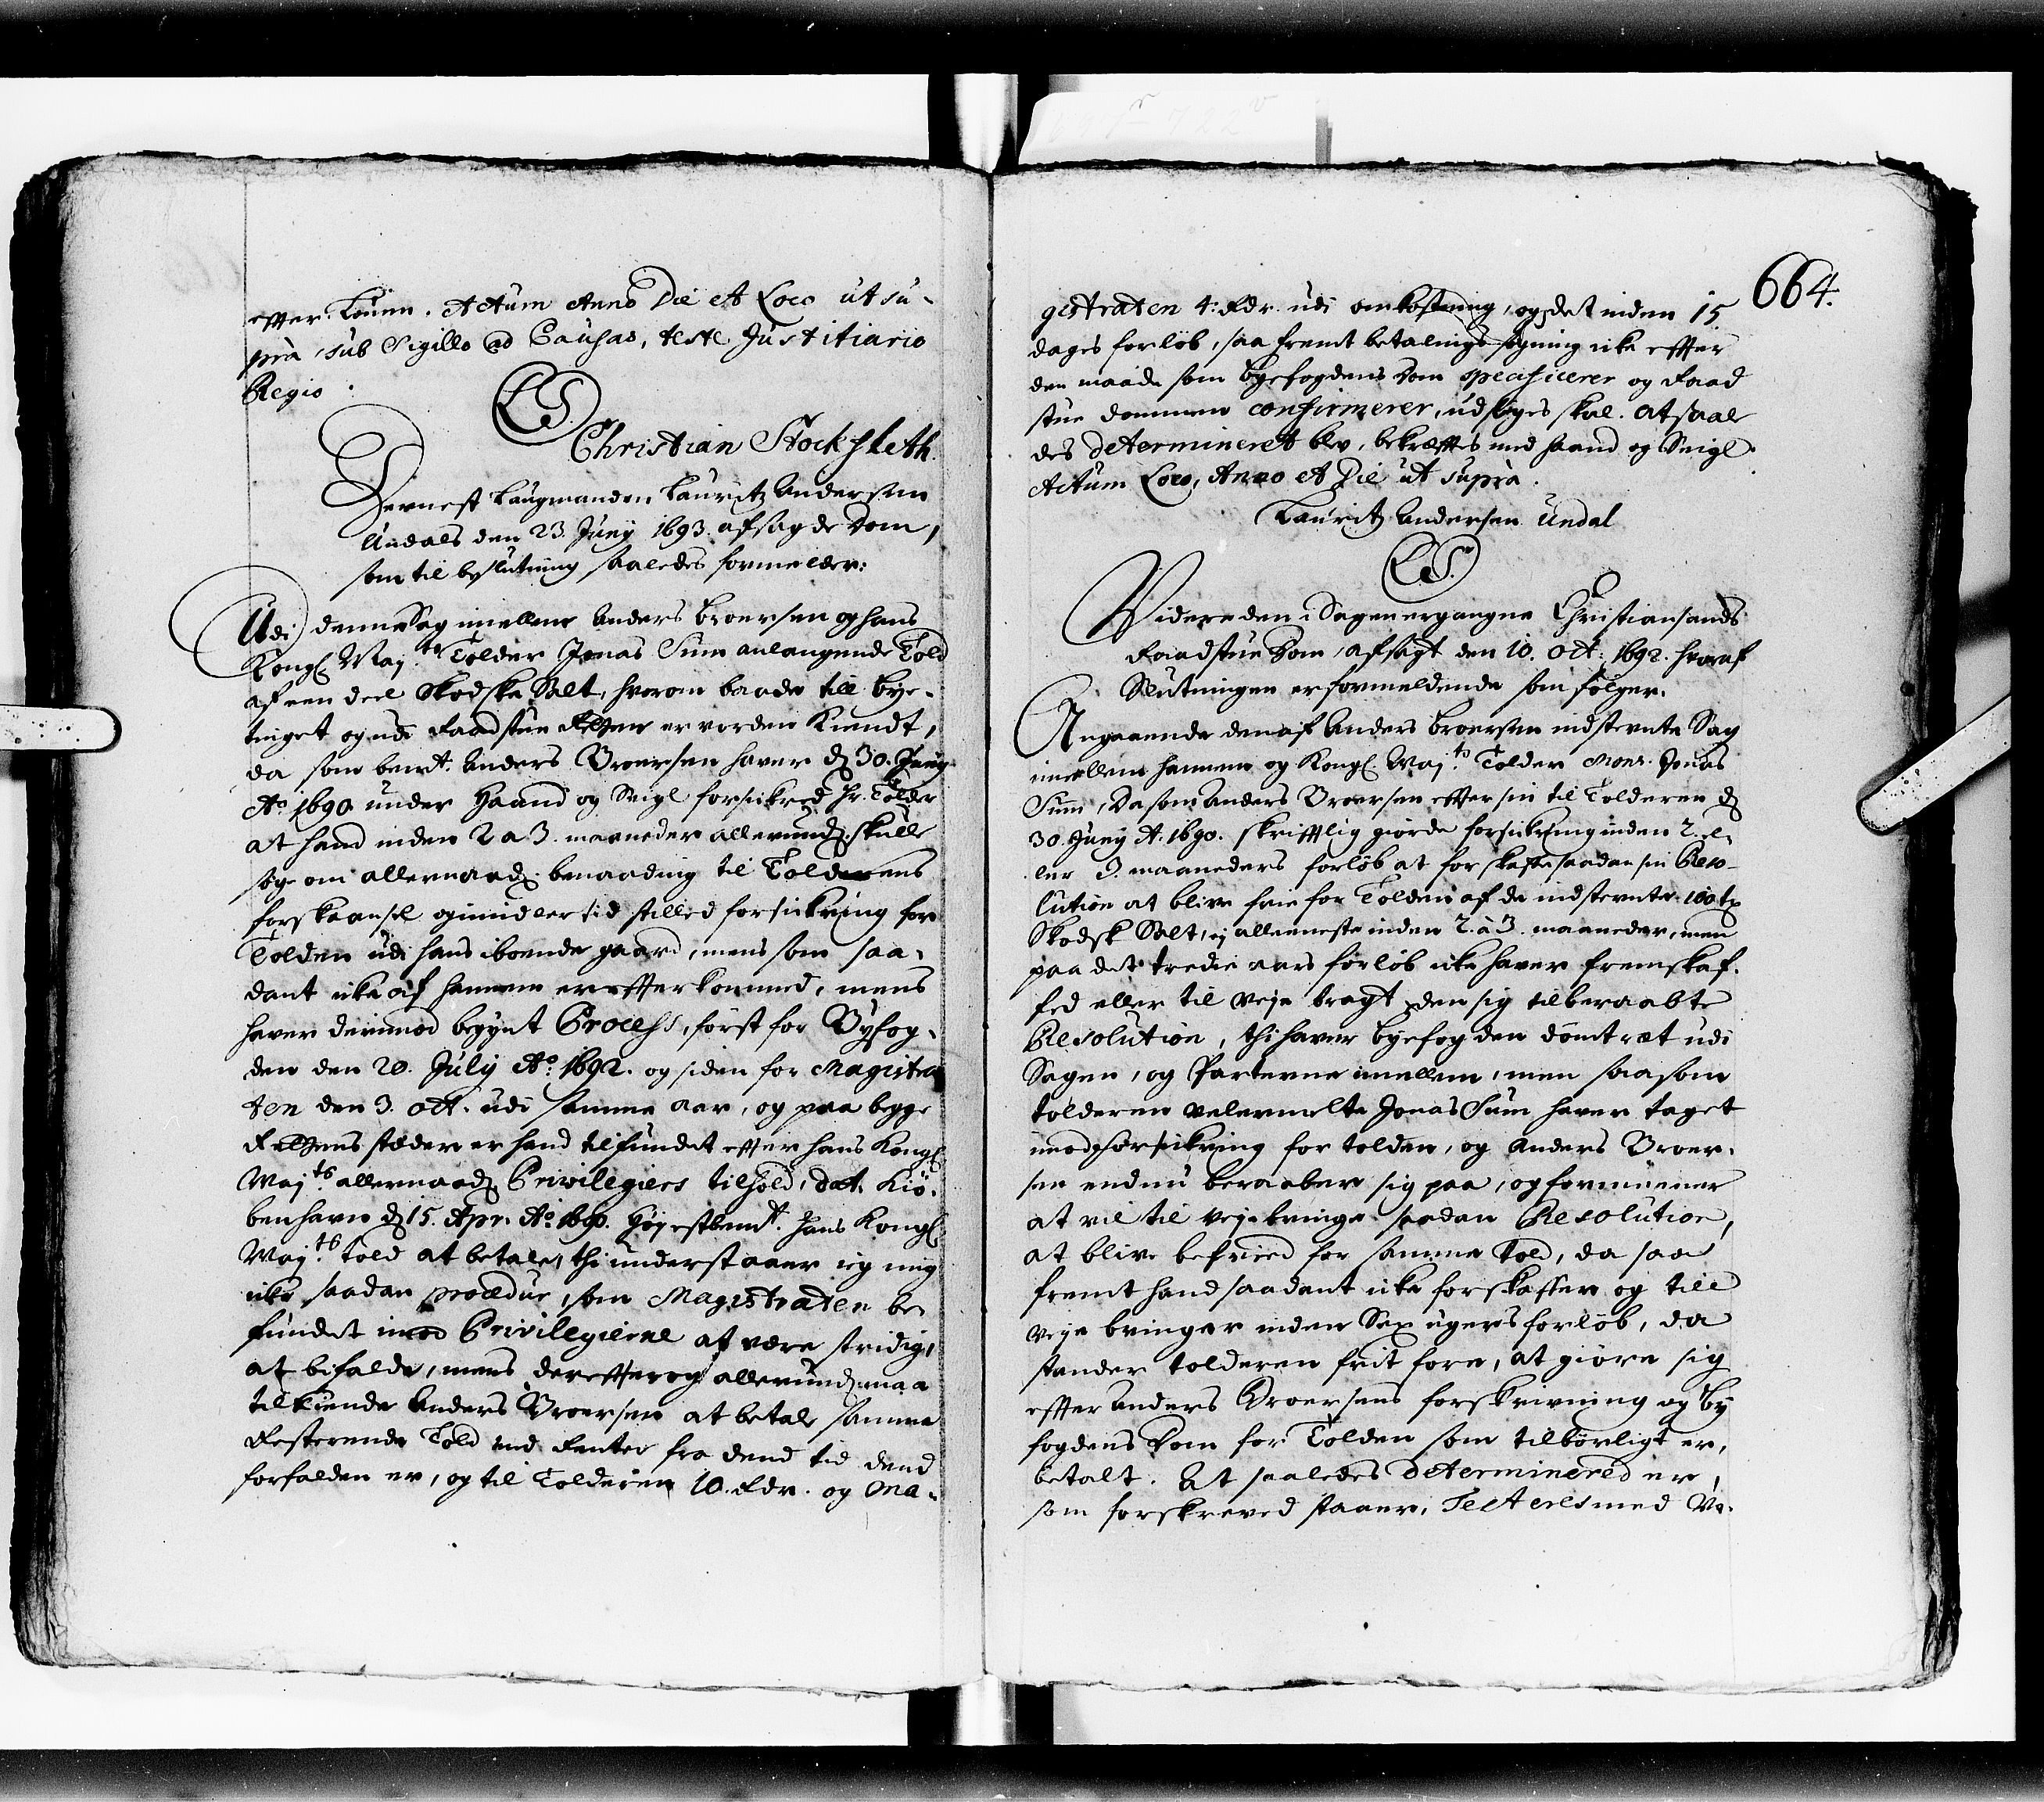 effter Louen. Actum Anno Die et Loco ut su-
prà, sub Sigillo ad Causas, teste Justitiario
Regio.
LS
Christian Stockfleth.
Dernest Laugmanden Lauritz Andersen
Undals den 23. Junij 1693. afsagde dom,
som til beslutning saaledes formelder:
Udi denne Sag imellem Anders Broersen og hans
Kongl. Maj.ts Tolder Jonas Sum anlangende Told
af een deel Skodske Salt, hvorom baade till bye-
tinget og udi Raadstue Retten er vorden kiendt,
da som bemt. Anders Broersen hafver d. 30. Junij
Ao. 1690 under Haand og Seigl forsickred hr. Tolder
at hand inden 2 a 3. maaneder allerund. skulle
søge om allernaad. benaading til Toldens
forskaansel og imidlertid stilled forsickring for
Tolden udi hans iboende gaard, mens som saa-
dant icke af hannem er effterkommed, mens
hafver derimod begynt Process, først for Byfog-
den den 20. Julij Ao. 1692. og siden for Magistra
ten den 3. Oct. udi samme aar, og paa begge
Rettens stæder er hand tilfundet effter hans Kongl.
Maj.ts allernaad. Privilegiers tilhold, dat. Kiø-
benhavn d. 15. Apr. Ao. 1690. Højestbemt. hans Kongl.
Maj.ts told at betale, thi understaaer jeg mig
icke saadan procedur, som Magistraten be
fundet imod Privilegierne at være stridig,
at bifalde, mens dereffter og allerund. maa
tilkiende Anders Broersen at betale samme
Resterende Told med Renter fra dend tid dend
forfalden er, og til Tolderen 10. Rdr. og Ma-
664.
gistraten 4. Rdr. udi omkostning, og det inden 15
dages forløb, saa fremt betalings søgning icke effter
den maade som byefogdens Dom specificerer og Raad
stue dommen confirmerer, udsøges skal. At saale
des determineret blev, bekræfftes med haand og Seigl.
Actum Loco, Anno et Die ut supra.
Lauritz Andersen Undal
LS.
Videre den i Sagen ergangne Christiansands
Raadstue Dom, afsagt den 10. Oct: 1692. hvoraf
Slutningen er formeldende som følger.
Angaaende den af Anders Broersen indstevnte Sag
imellem hannem og Kongl. Maj.ts Tolder Monr. Jonas
Sum, Da som Anders Broersen effter sin til Tolderen d.
30. Junij A. 1690. skrifftlig giorde forsickring inden 2. el-
ler 3. maaneders forløb at forskaffe saadan sin Reso-
lution at blive frie for Tolden af de indstevnte 100 tr
Skodsk Salt, ej alleeneste inden 2. à 3. maaneder, men
paa det tredie aars forløb icke hafver fremskaf-
fed eller til Veje bragt den sig tilberaabte
Resolution, thi hafver byefogden dømt ræt udi
Sagen, og Parterne imellem, men saasom
tolderen velermelte Jonas Sum hafver taget
imod forsickring for tolden, og Anders Broer-
sen endnu beraaber sig paa, og formeener
at vil til veje bringe saadan Resolution,
at blive befried for samme told, da saa
fremt hand saadant icke forskaffer og till
veje bringer inden Sex ugers forløb, da
stander tolderen frit fore, at giøre sig
effter Anders Broersens forskrivning og By
fogdens dom for Tolden som tilbørligt er,
betalt. At saaledes determinered er,
som forskreved staaer, Testeres med Vo-